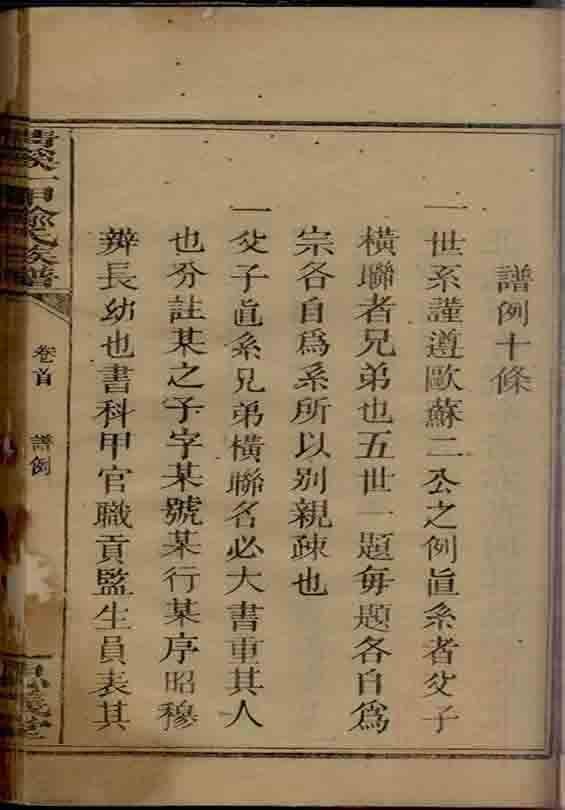 譜例十條
一世系謹遵歐蘇二公之例直系者父子
橫聯者兄弟也五世一題每題各自爲
宗各自爲系所以別親疎也
一父子直系兄弟橫聯名必大書重其人
也分註某之子字某號某行某序昭穆
辨長幼也書科甲官職貢監生員表其
一甲徐氏族譜
卷首
譜例